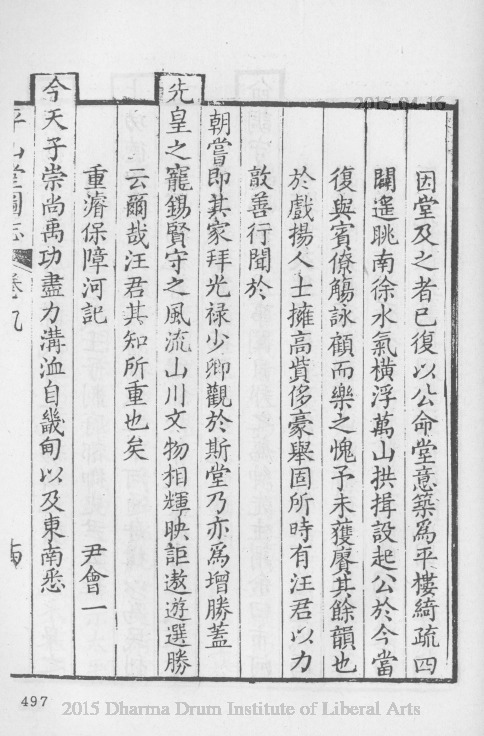 2015-04-16
因堂及之者已復以公命堂意築爲平樓綺疏四
闢遙眺南徐水氣橫浮萬山拱揖設起公於今當
復與賓僚觴詠顧而樂之愧予未獲賡其餘韻也
於戲揚人士擁高貲侈豪舉固所時有汪君以力
敦善行聞於
朝嘗即其家拜光禄少卿觀於斯堂乃亦爲增勝蓋
先皇之寵錫賢守之風流山川文物相輝映詎遨遊選勝
云爾哉汪君其知所重也矣
重濬保障河記 尹會一
今天子崇尚禹功盡力溝洫自畿甸以及東南悉
平山堂圖志 卷九
497
2015 Dharma Drum Institute of Liberal Arts